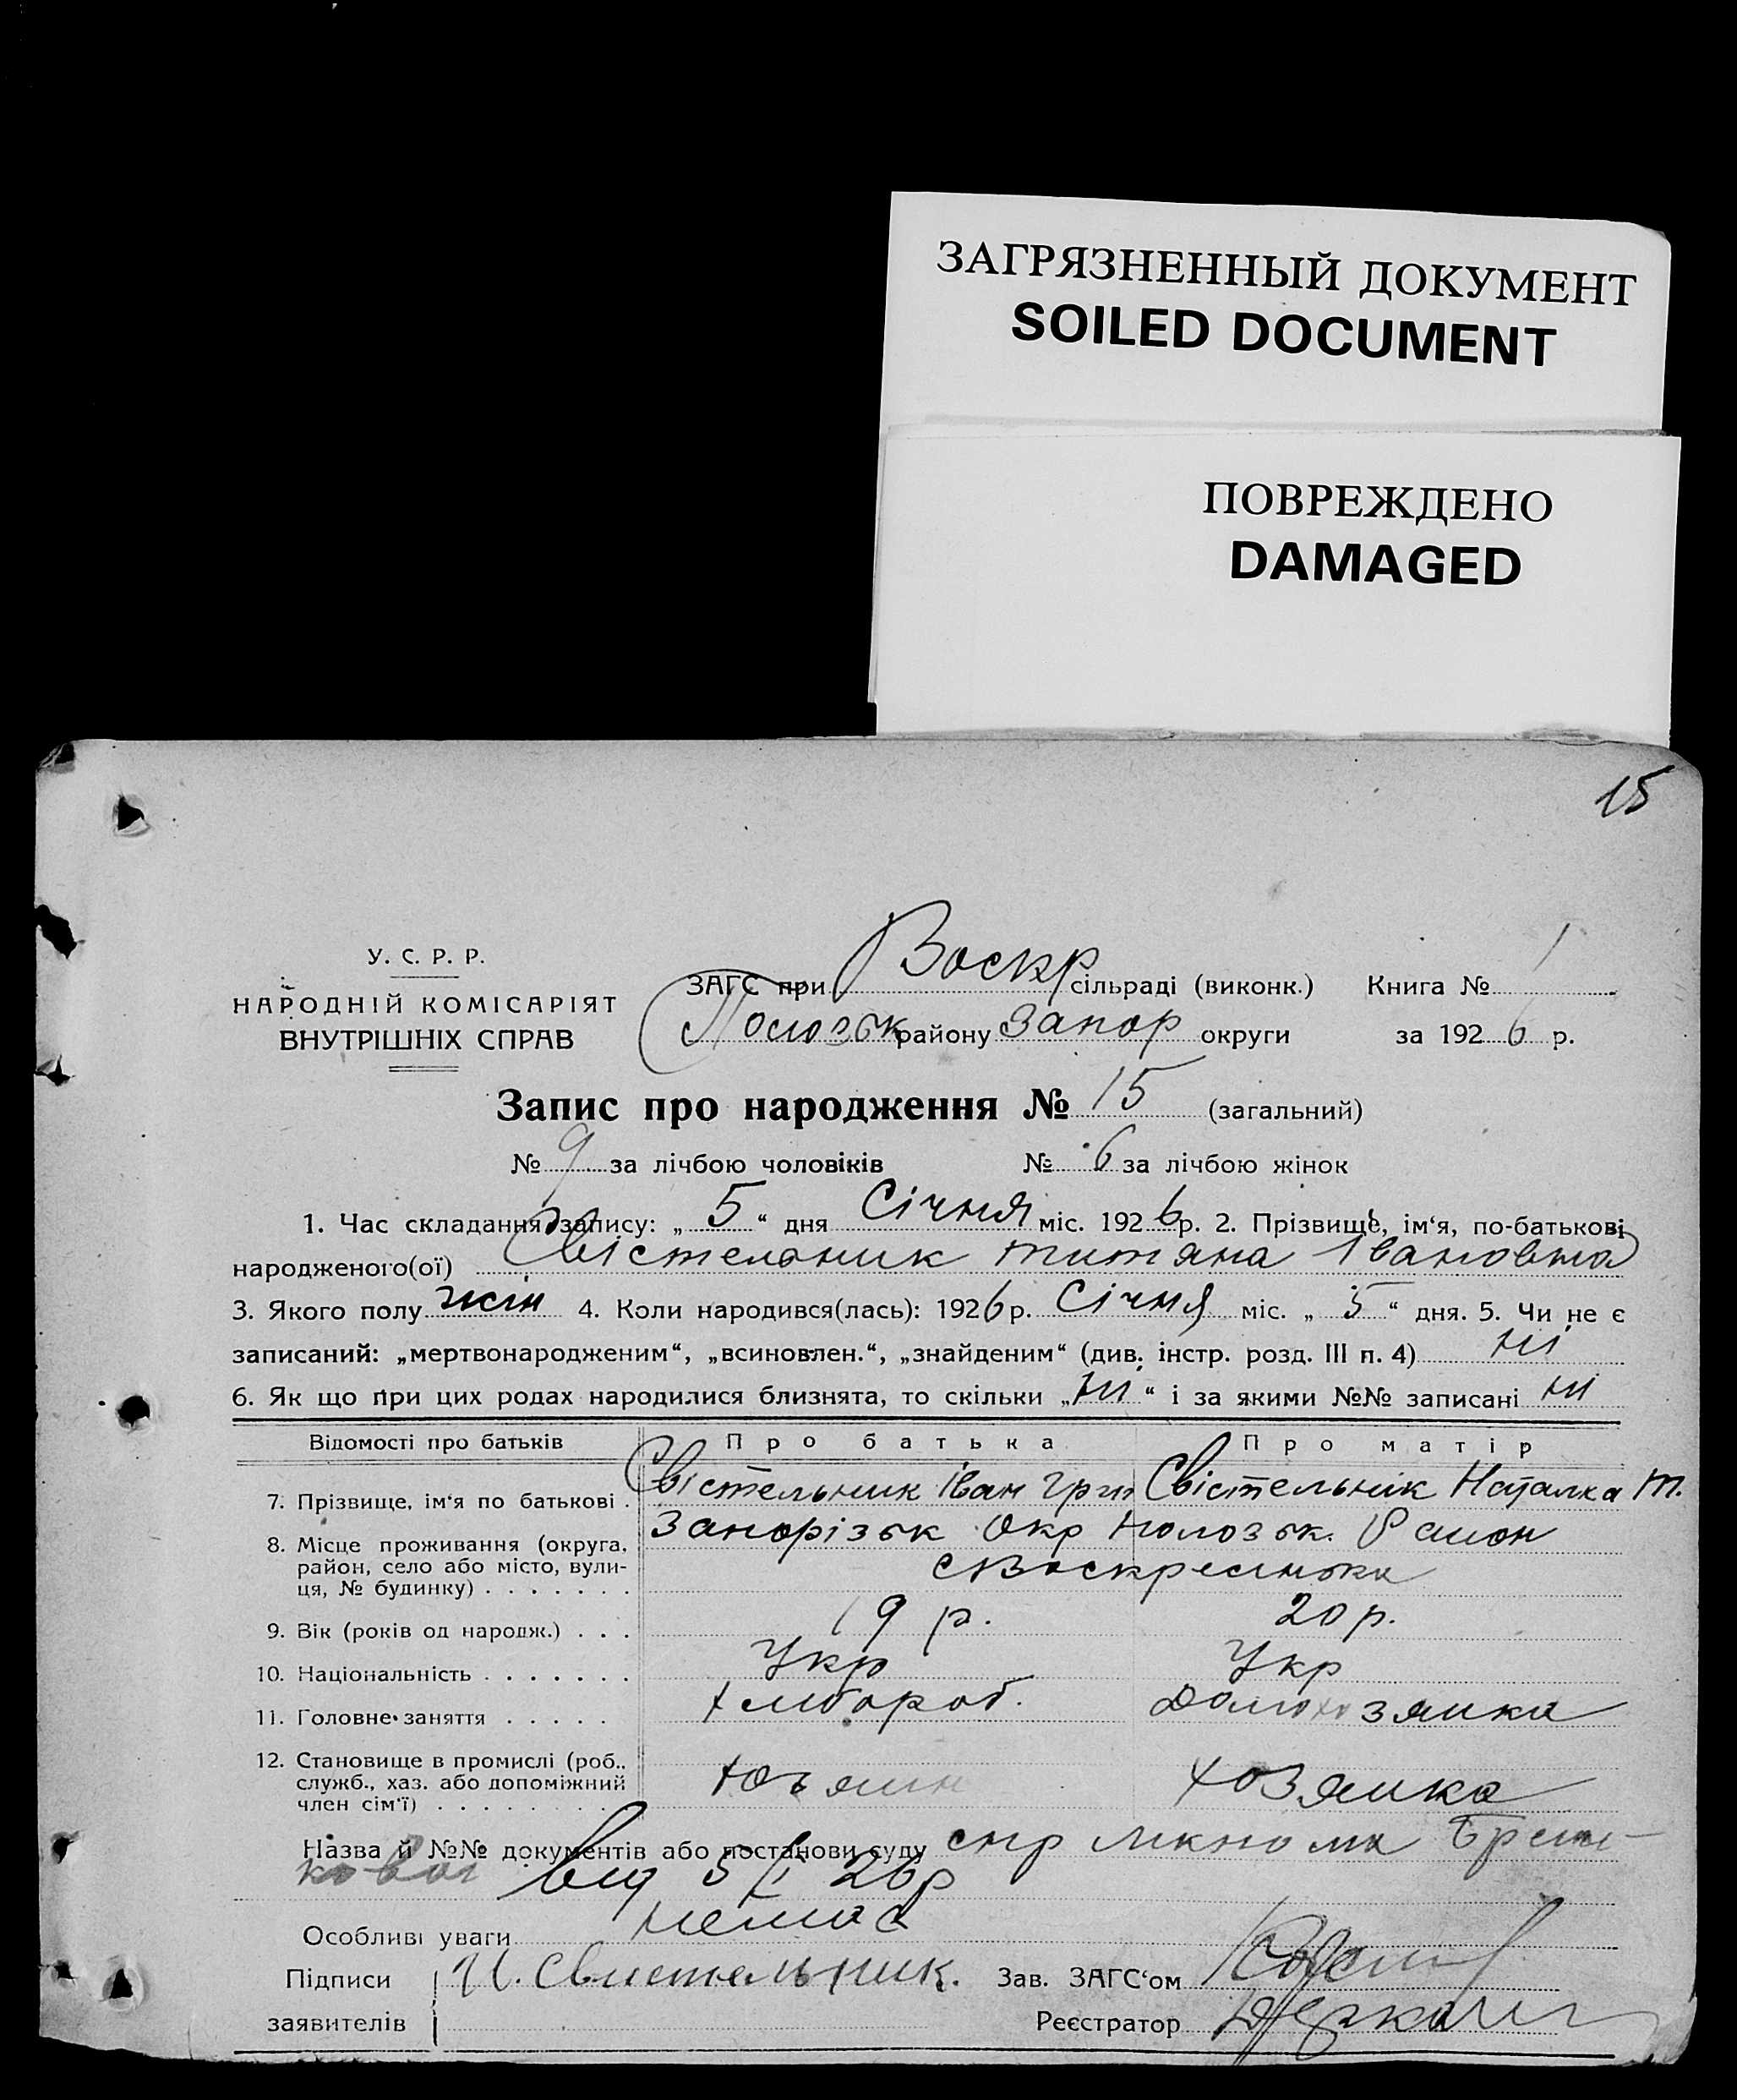 ЗАГРЯЗНЕННЫЙ ДОКУМЕНТ
SOILED DOCUMENT
ПОВРЕЖДЕНО
DAMAGED
15
У. С. Р. Р.
НАРОДНІЙ КОМІСАРІЯТ
ВНУТРІШНІХ СПРАВ
ЗАГС при Воскр сільраді (виконк.) Книга № 1
Пологзьк району Запор округи за 1926 р.
Запис про народження № 15 (загальний)
№ 9 за лічбою чоловіків № 6 за лічбою жінок
1. Час складання запису: „ 5 “ дня Січня міс. 1926 р. 2. Прізвище, ім‘я, по-батькові
народженого(ої) Свістельник Титяна Івановна
3. Якого полу жін 4. Коли народився(лась): 1926 р. Січня міс. „ 5 “ дня. 5. Чи не є
записаний: „мертвонародженим“, „всиновлен.“, „знайденим“ (див. інстр. розд. III п. 4) ні
6. Як що при цих родах народилися близнята, то скільки „ ні “ і за якими №№ записані ні
Відомості про батьків Про батька Про матір
7. Прізвище, ім‘я по батькові . Свістельник Іван Григ Свістельнік Наталка Т.
8. Місце проживання (округа, район, село або місто, вулиця, № будинку) . . . . . . . Запорізьк Окр Полозьк. Район
с Воскресінька
9. Вік (років од народж.) . . . 19 р. 20 р.
10. Національність . . . . . . . Укр Укр
11. Головне заняття . . . . . Хлібороб. Домохозяика
12. Становище в промислі (роб.,
служб., хаз. або допоміжний
член сім‘ї) . . . . . . . . Хозяин Хозяика
Назва й №№ документів або постанови суду
від 5/I 26 р
Особливі уваги немає
Підписи И. Свистельник. Зав. ЗАГС‘ом
заявителів Реєстратор